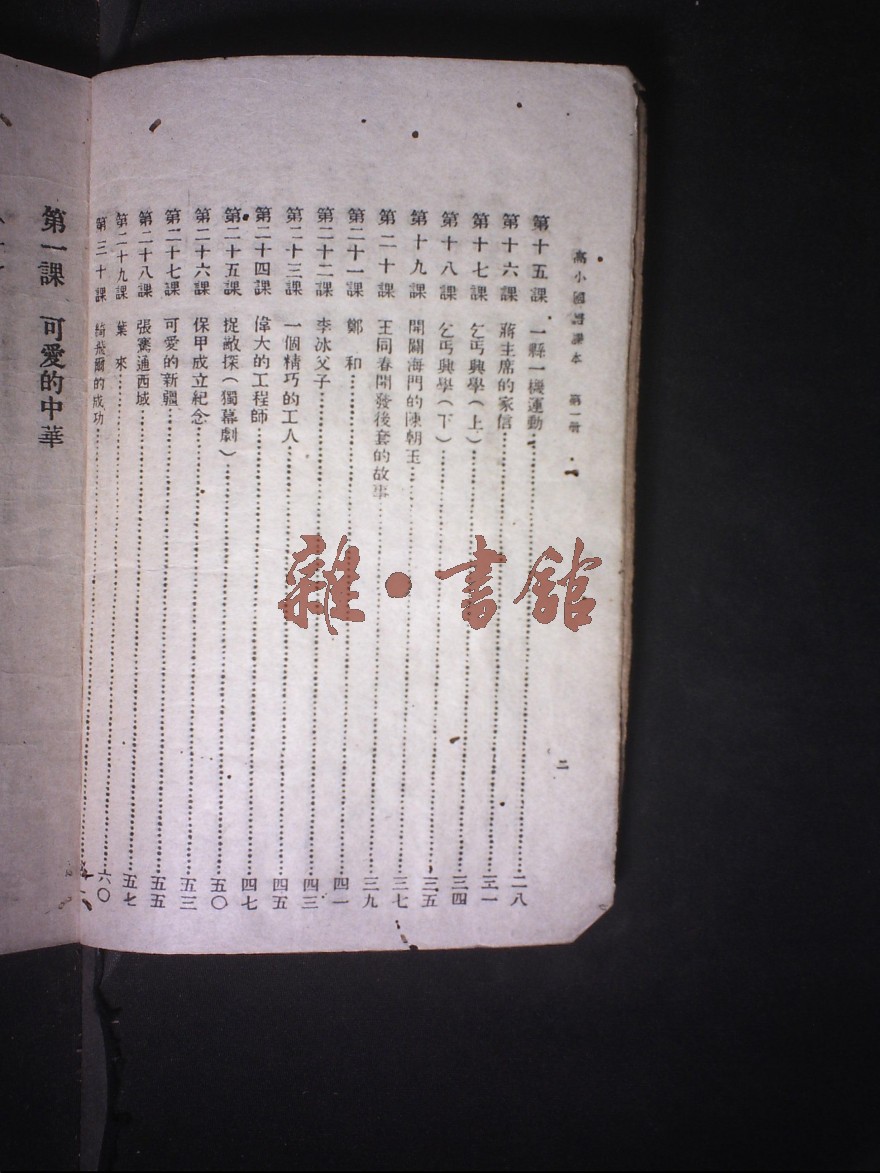 高小國語課本　第一册
第十五課　一縣一機運動……二八
第十六課　蔣主席的家信……三一
第十七課　乞丐興學(上)……三四
第十八課　乞丐興學(下)……三五
第十九課　開闢海門的陳朝玉……三七
第二十課　王同春開發後套的故事……三九
第二十一課　鄭和……四一
第二十二課　李冰父子……四三
第二十三課　一個精巧的工人……四五
第二十四課　偉大的工程師……四七
第二十五課　捉敵探(獨幕劇)……五〇
第二十六課　保甲成立紀念……五三
第二十七課　可愛的新疆……五五
第二十八課　張騫通西域……五七
第二十九課　葉來……
第三十課　綺飛爾的成功……六〇
二
第一課　可愛的中華
雜·書館